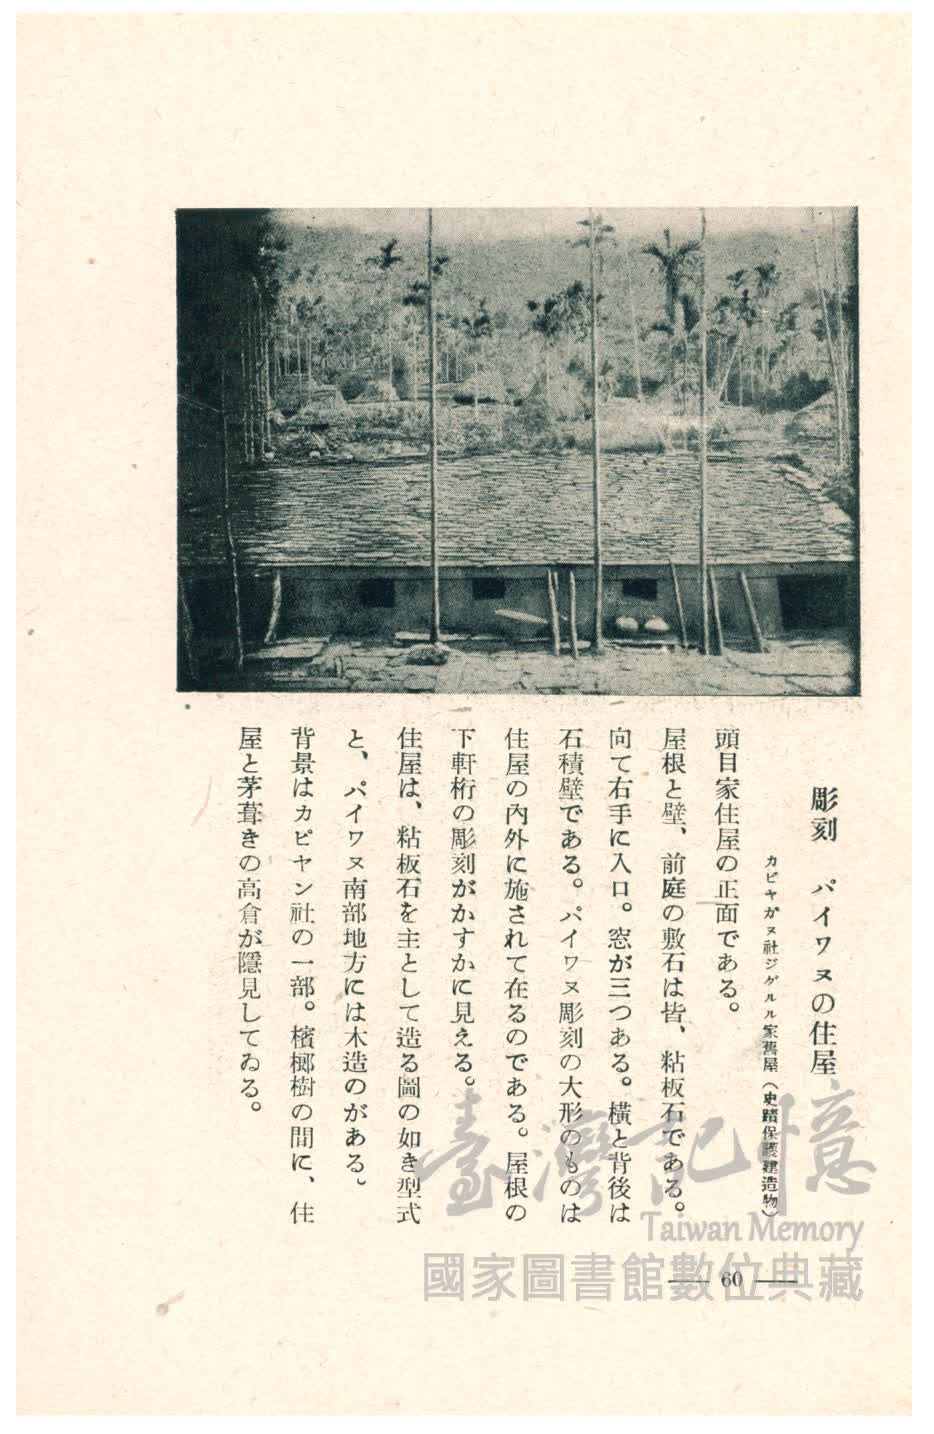 彫刻　パイワヌの住屋
カピヤガヌ社ジグルル家舊屋（史蹟保護建造物）
頭目家住屋の正面である。
屋根と壁、前庭の敷石は皆、粘板石である。
向て右手に入口。窓が三つある。橫と背後は
石積壁である。パイワヌ彫刻の大形のものは
住屋の內外に施されて在るのである。屋根の
下軒桁の彫刻がかすかに見える。
住屋は、粘板石を主として造る圖の如き型式
と、パイワヌ南部地方には木造のがある。
背景はカピヤン社の一部。檳榔樹の間に、住
屋と茅葺きの高倉が隱見してゐる。
臺灣記憶
Taiwan Memory
國家圖書館數位典藏
— 60 —